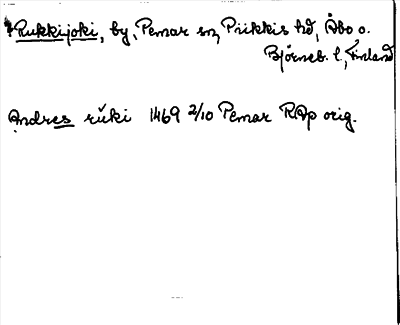 Rukkijoki, by, Pemar sn, Piikkis hd, Åbo o.
Björneb. l., Finland
Andres růki 1469 2/10 Pemar RAp orig.